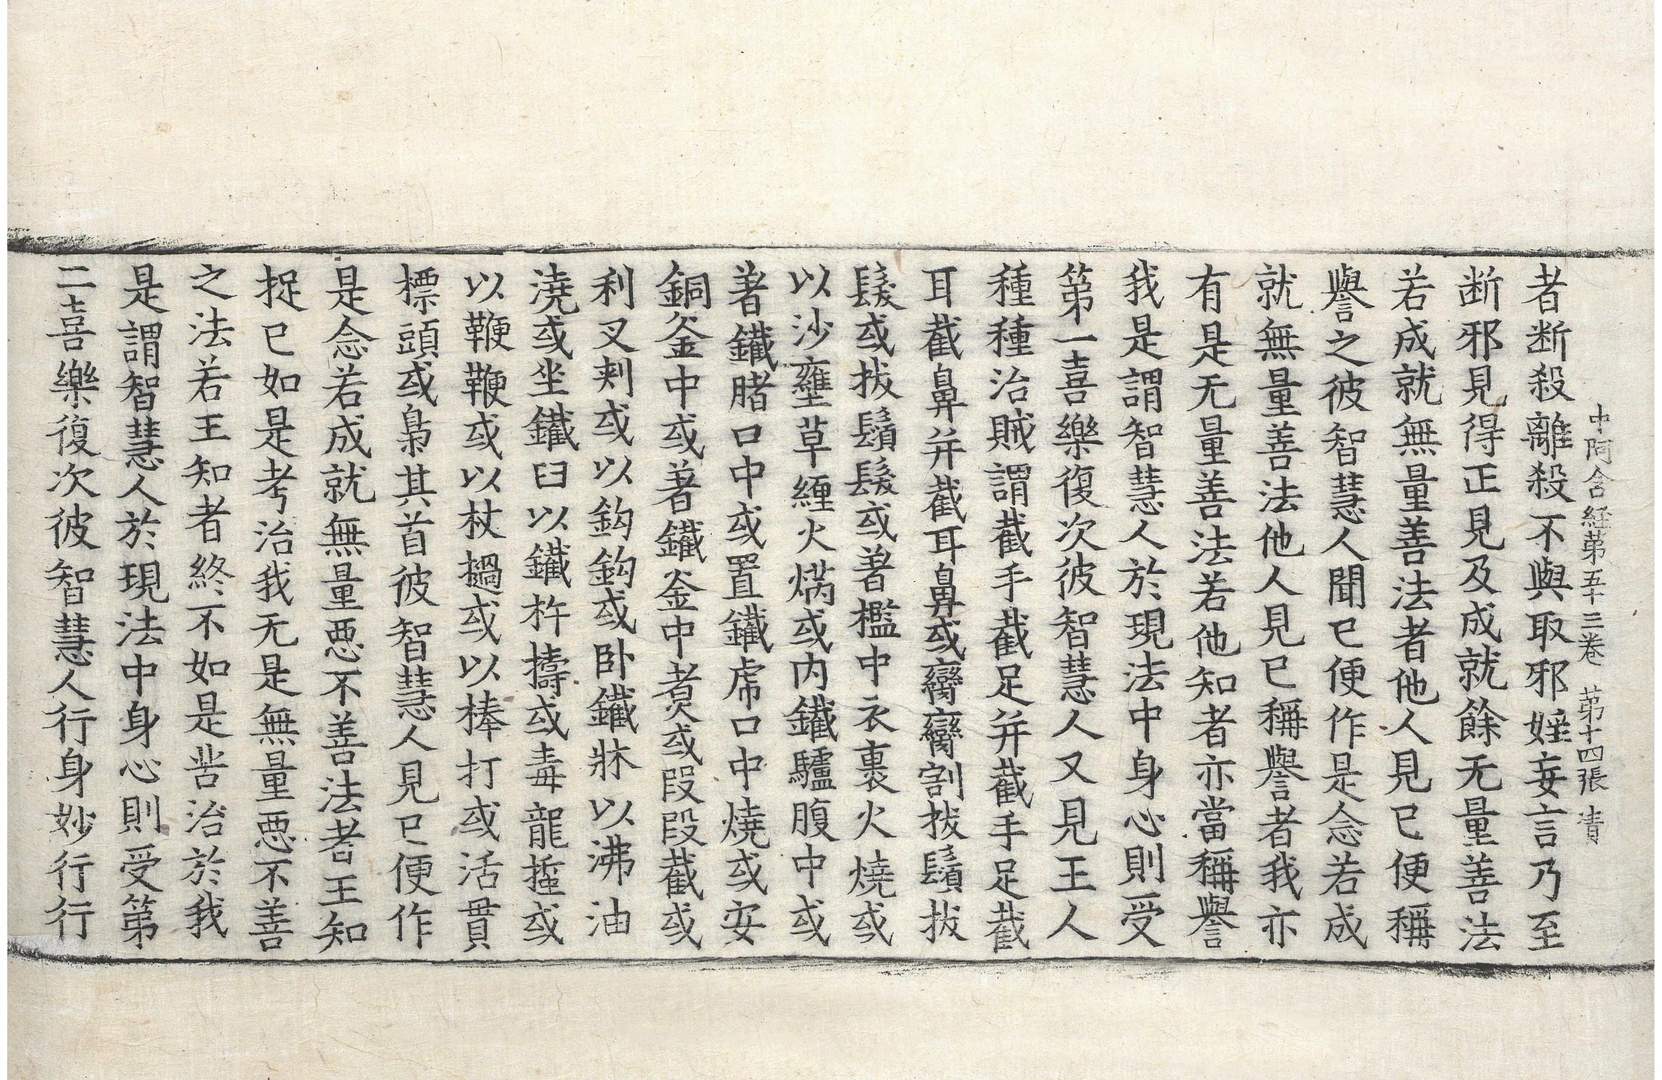 中阿含経苐五十三巻 苐十四張 責
者断殺離殺不與取邪婬妄言乃至
断邪見得正見及成就餘无量善法
若成就無量善法者他人見已便稱
譽之彼智慧人聞已便作是念若成
就無量善法他人見已稱譽者我亦
有是无量善法若他知者亦當稱譽
我是謂智慧人於現法中身心則受
苐一喜樂復次彼智慧人又見王人
種種治賊謂截手截足并截手足截
耳截鼻并截耳鼻或臠臠割拔鬚拔
髮或拔鬚髮或著檻中衣裹火燒或
以沙壅草纏火焫或内鐵驢腹中或
著鐵賭口中或置鐵虎口中燒或安
銅釜中或著鐵釜中煮或段段截或
利叉刺或以鈎鈎或卧鐵牀以沸油
澆或坐鐵臼以鐵杵擣或毒龍蜇或
以鞭鞭或以杖撾或以棒打或活貫
標頭或梟其首彼智慧人見已便作
是念若成就無量惡不善法者王知
捉已如是考治我无是無量惡不善
之法若王知者終不如是苦治於我
是謂智慧人於現法中身心則受第
二喜樂復次彼智慧人行身妙行行